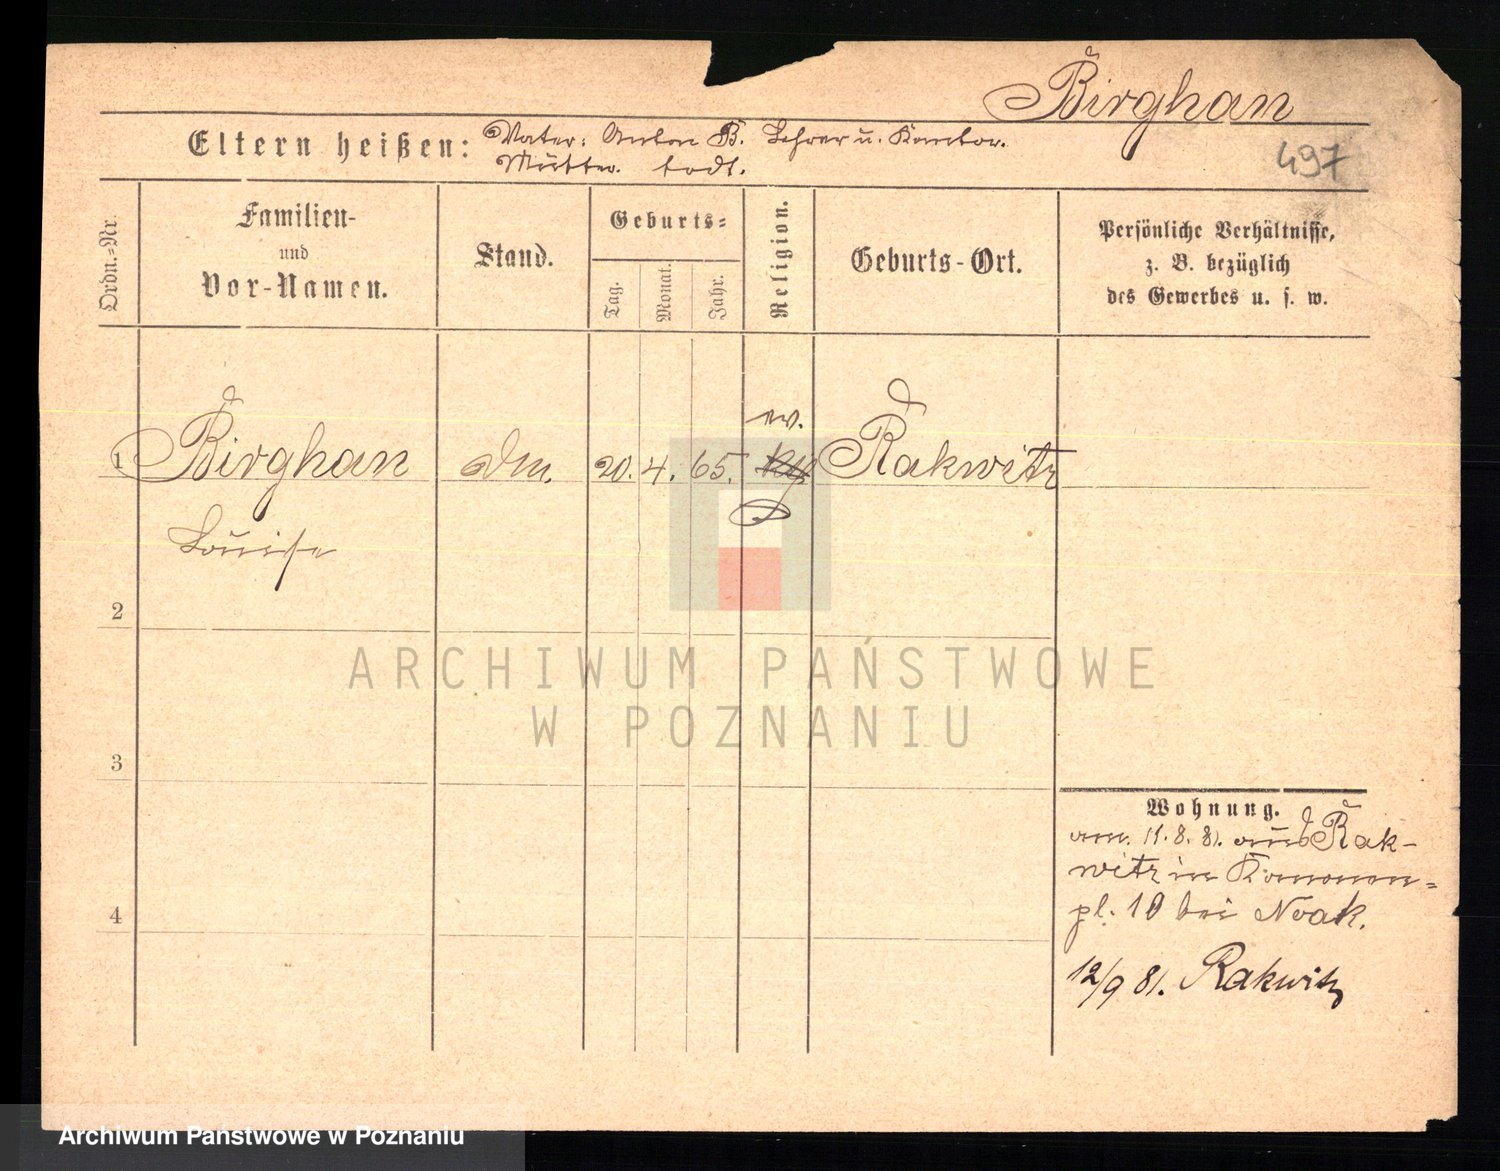 Birghan
Eltern heißen: Vater: Anton B. Lehrer u. Kantor.
Mutter todt.
497
Ordn.-Nr.
Familien-
und
Vor-Namen.
Stand.
Geburts-
Tag.
Monat.
Jahr.
Religion.
Geburts-Ort.
Persönliche Verhältnisse,
z. B. bezüglich
des Gewerbes u. s. w.
1 Birghan 20. 4. 65. ev. Rakwitz
Louise
2
3
4
Wohnung.
am 11.8.81. aus Rak-
witz in Kanonen-
pl. 10 bei Noak.
12/9 81. Rakwitz
ARCHIWUM PAŃSTWOWE
W POZNANIU
Archiwum Państwowe w Poznaniu